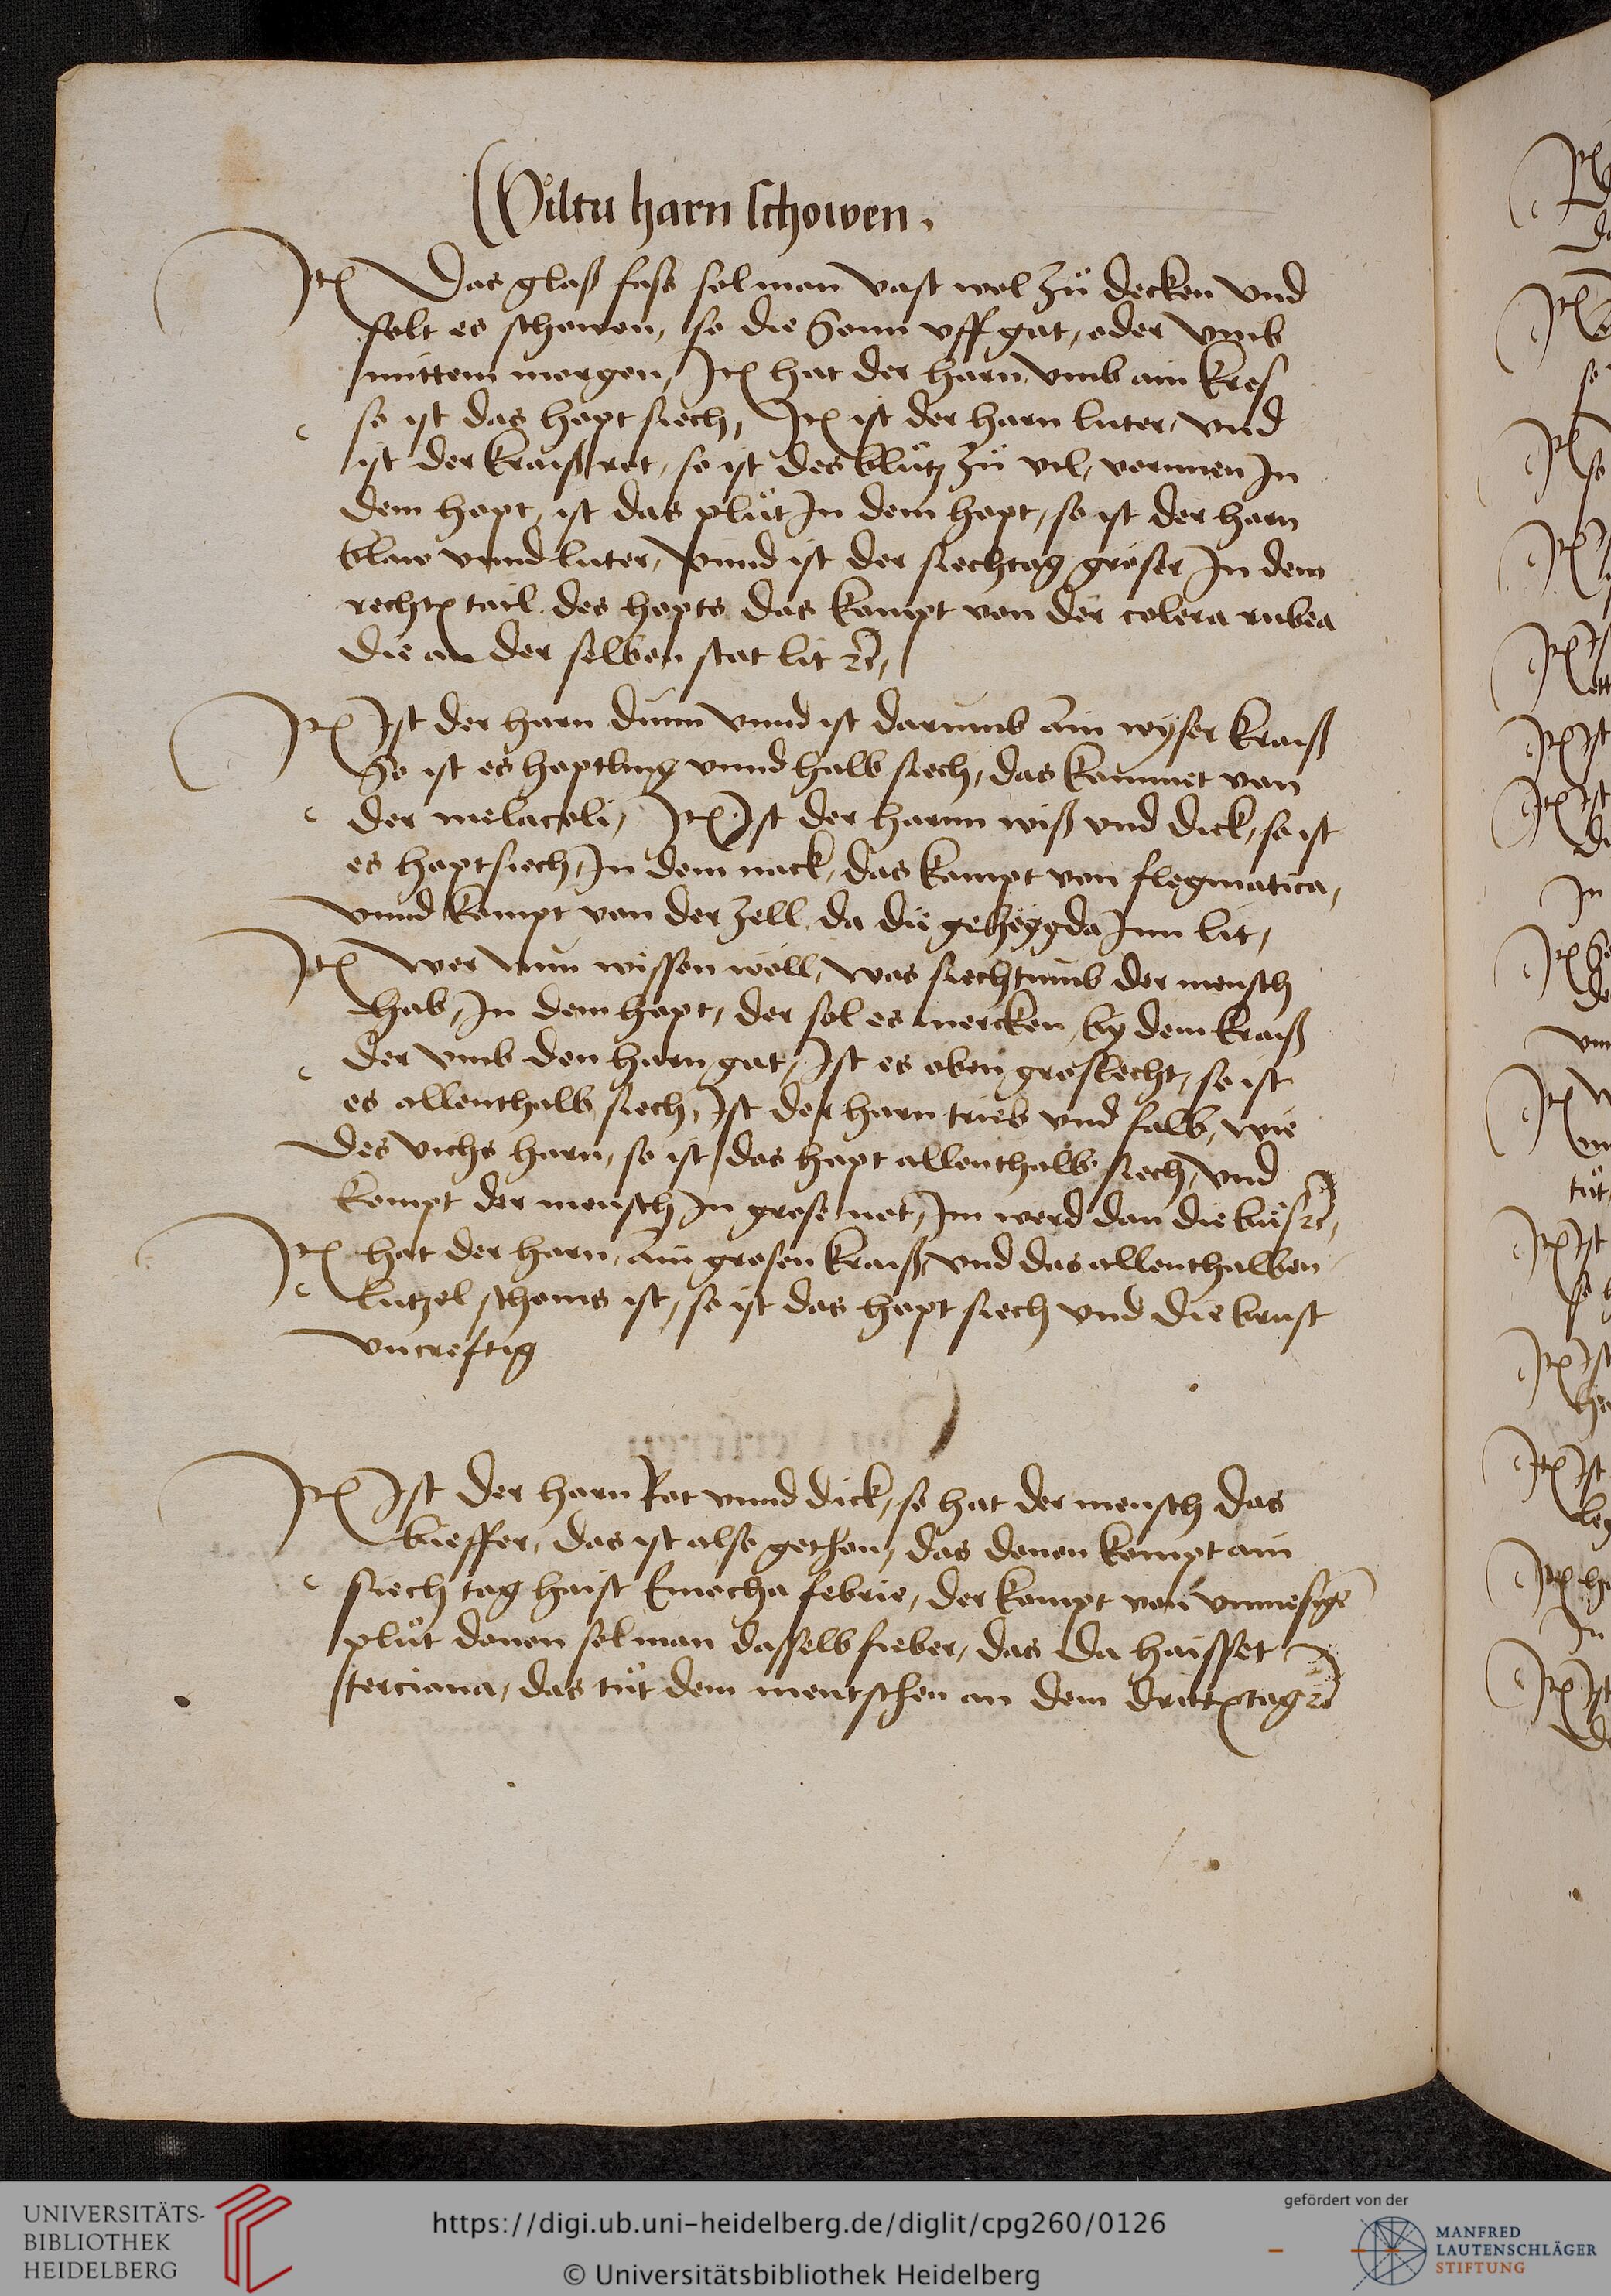 Wiltu harn schowen.
Itē Das glaß fass sol man vast wol zů decken vnd
solt es schowen, so die Sonn vff gat, oder vmb
mittem morgen, Itē hat der harn vmb ain kres
so ist das hopt siech, Itē ist der harn luter, vnd
ist der kraiß rot, so ist des blůtz zů vil, vornnen In
dem hopt, ist das plůt In dem hopt, so ist der harn
blaw vnnd luter, vnnd ist der siechtag gröser In dem
rechtē tail des hopts das kompt von der colera rubea
die an der selben stat lit rc̄,
Itē Ist der harn dunn vnnd ist darumb ain wyser kraiß
So ist es hoptling vnnd halb siech, das kommet von
der melacoli, Itē Ist der harnn wiß vnd dick, so ist
es hoptsiech, In dem nack, das kompt von flegmatica,
vnnd kompt von der zell da die gehöggda Inn lit,
Itē wer nun wissen wöll, was siechtumb der mensch
hab, In dem hopt, der sol es mercken, by dem kraiß
der vmb den harn gat, Ist es oben groslecht, so ist
es allenthalb siech, Ist der harn trieb vnd falb, wie
des vichs harn, so ist das hopt allenthalb siech, vnd
kompt der mensch In grose not, Im werd dan die bůs rc̄,
Itē hat der harn, ain grosen kraiß vnd das allenthalben
lutzel schoms ist, so ist das hopt siech vnd die brust
vncreftig
Itē Ist der harn Rot vnnd dick, so hat der mensch das
bieffer, das ist also gethon, das denen kompt ain
siech tag haist Emocha febrie, der kompt von vnmesigē
plůt denen sol man dasselb fieber, das da haisset
terciana, das tůt dem mentschen an dem drittē tag rc̄
UNIVERSITÄTS-
BIBLIOTHEK
HEIDELBERG
https://digi.ub.uni-heidelberg.de/diglit/cpg260/0126
© Universitätsbibliothek Heidelberg
gefördert von der
MANFRED
LAUTENSCHLÄGER
STIFTUNG